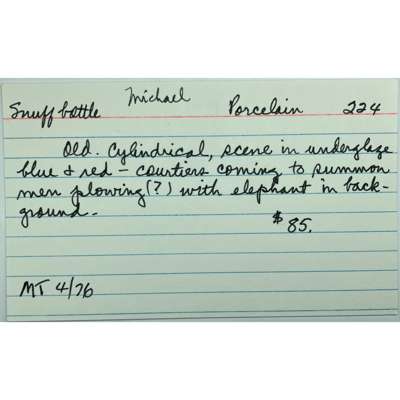 Snuff bottle Michael Porcelain 224
Old. Cylindrical, scene in underglaze
blue & red – courtiers coming to summon
men plowing(?) with elephant in back-
ground.
$85.
MT 4/76